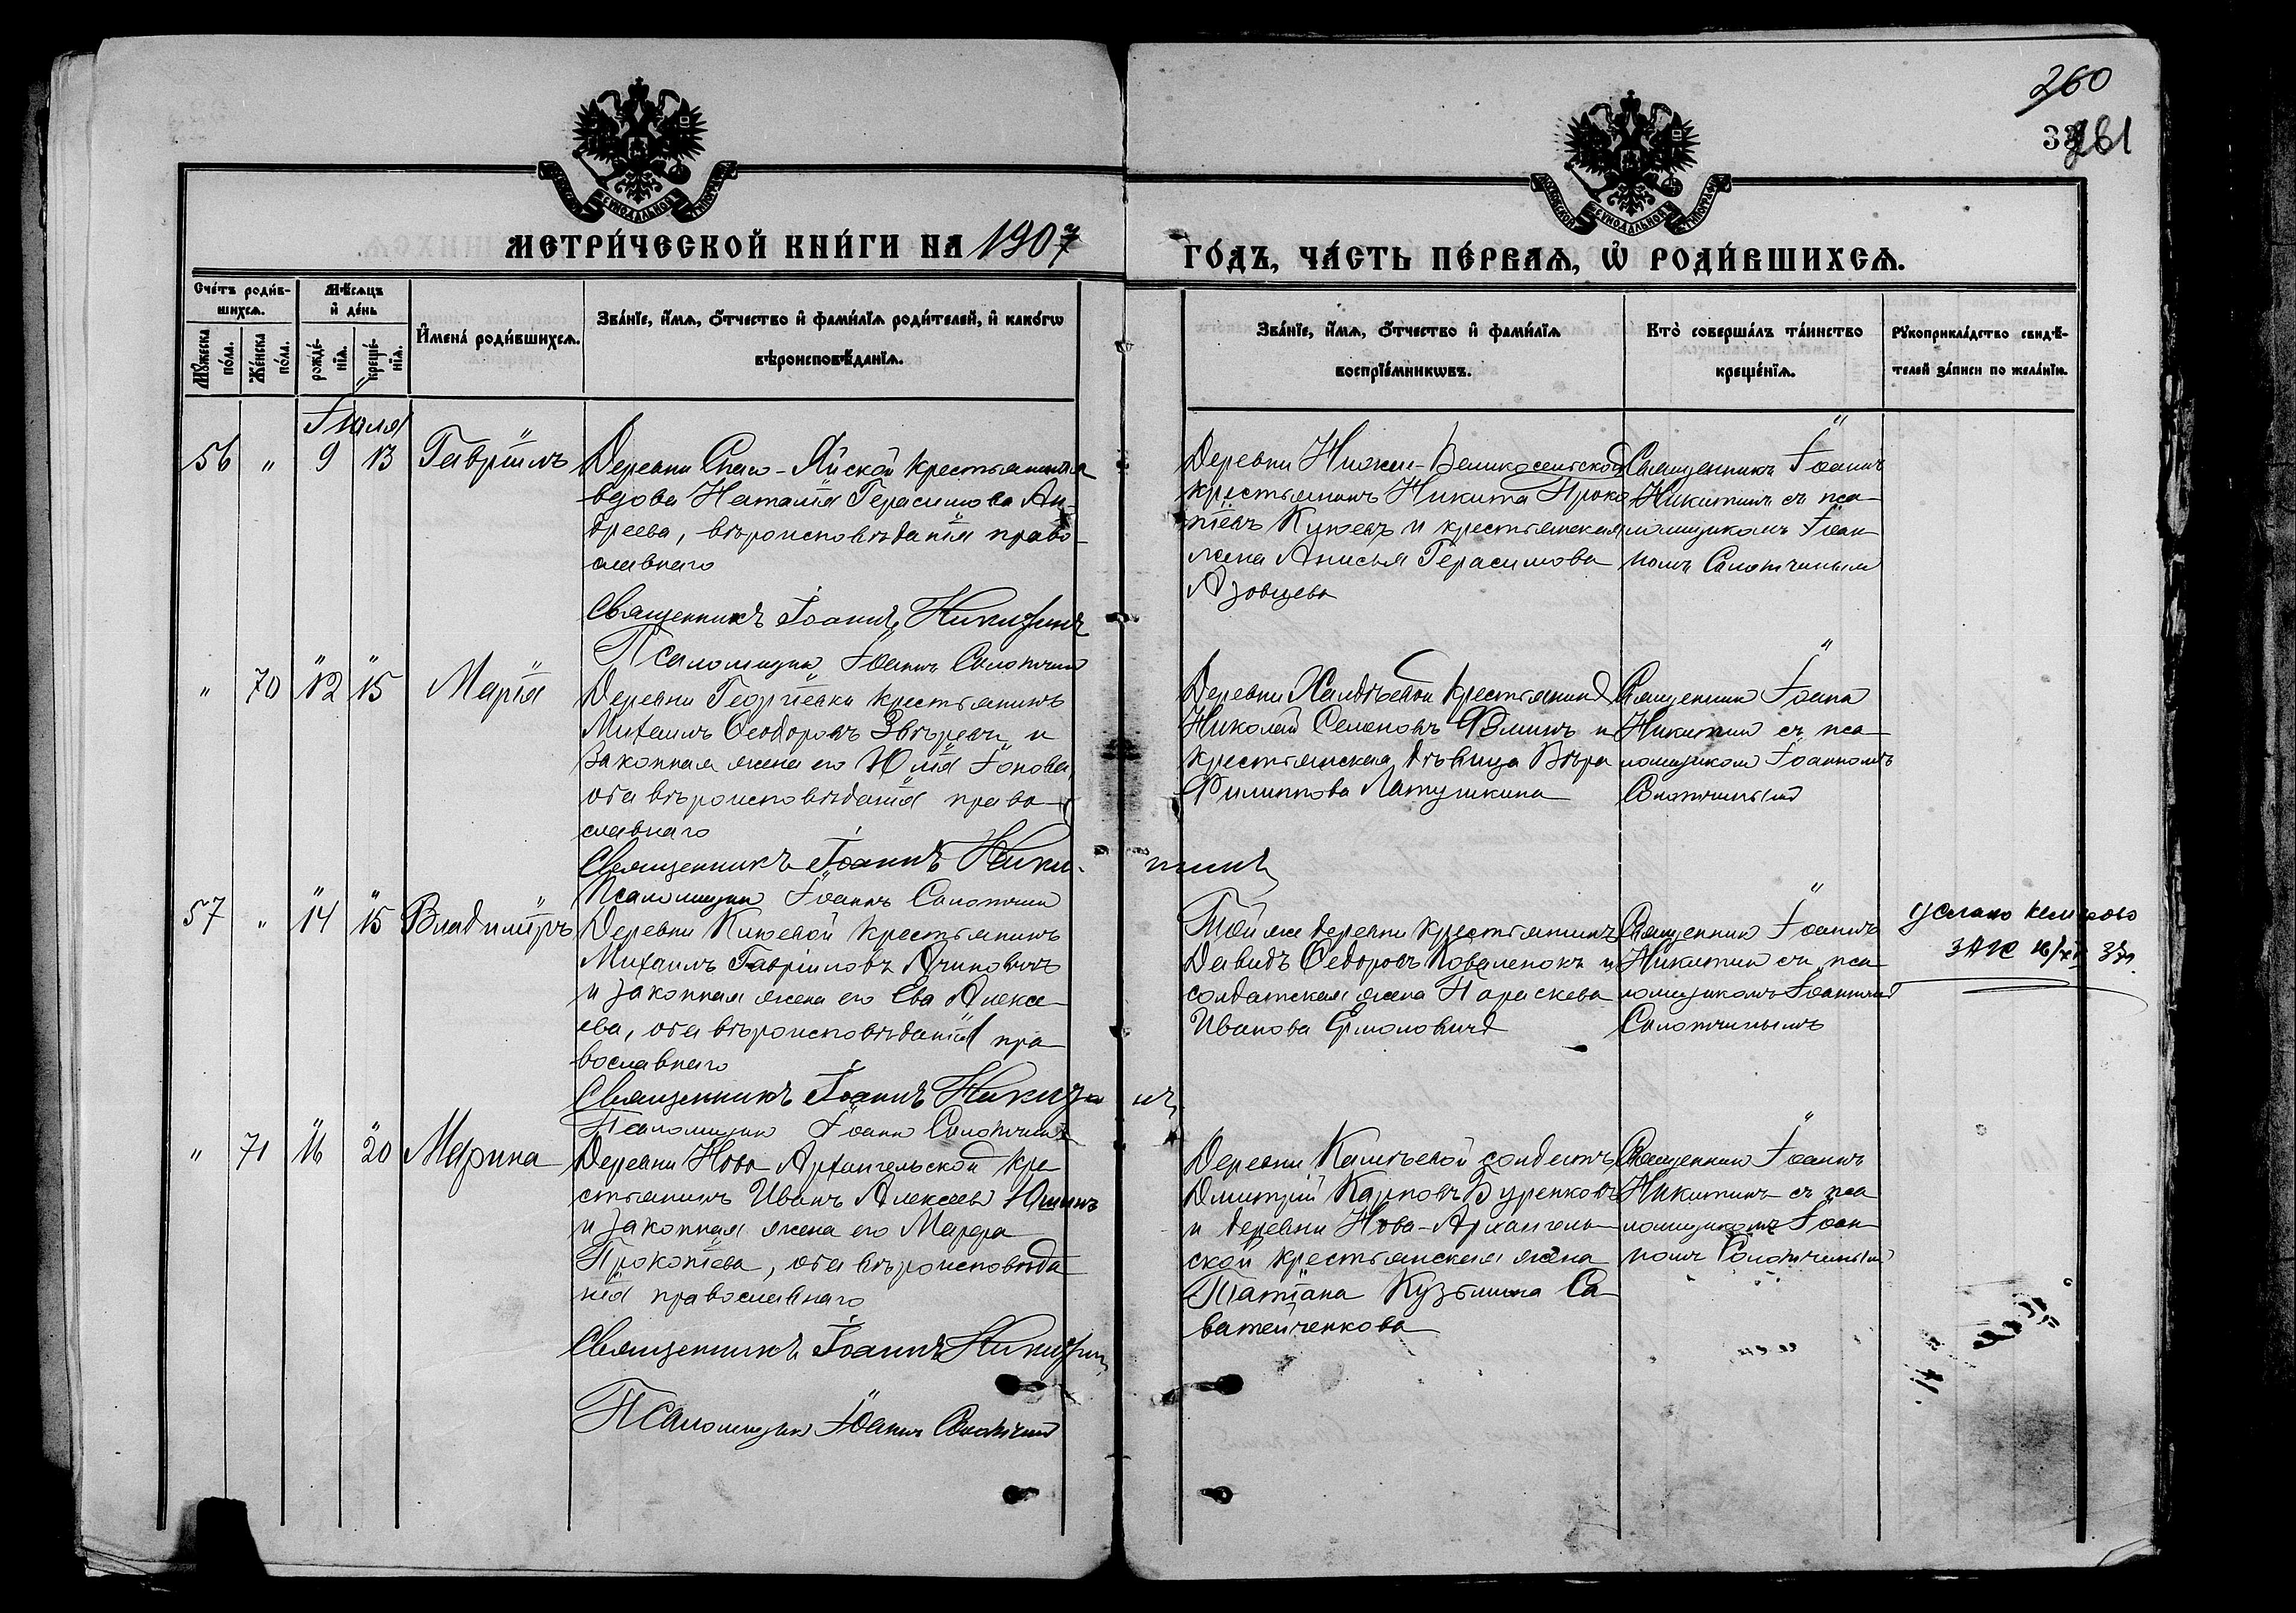 260
261
МЕТРИ́ЧЕСКОЙ КНИ́ГИ НА 1907
ГО́ДЪ, ЧА́СТЬ ПЕ́РВАѦ, Ѡ҆ РОДИ́ВШИХСѦ.
Сче́тъ роди́в-
шихсѧ.
Мꙋжеска
по́ла.
Же́нска
по́ла.
Мѣ́сѧцъ
и҆ де́нь
рожде́-
нїѧ.
креще́-
нїѧ.
И҆мена̀ роди́вшихсѧ.
Зва́нїе, и҆́мѧ, ѻ҆́тчество и҆ фами́лїѧ роди́телей, и҆ како́гѡ
вѣроисповѣ́данїѧ.
Зва́нїе, и҆́мѧ, ѻ҆́тчество и҆ фами́лїѧ
воспрїе́мникѡвъ.
Кто̀ соверша́лъ та́инство
креще́нїѧ.
Рꙋкоприкла́дство свидѣ́-
телей за́писи по жела́нїю.
Іюля
56 " 9 13 Гавріилъ
Деревни Спасо-Яйской крестьянская
вдова Наталія Герасимова Ан-
дреева, вѣроисповѣданія право-
славнаго
Священникъ Іоаннъ Никитинъ
Псаломщикъ Іоаннъ
Деревни Нижне-
крестьянинъ Никита Проко
піевъ и крестьянская
жена Анисья Герасимова
Азовцева
Священникъ Іоаннъ
Никитинъ съ пса-
ломщикомъ Іоан-
номъ
" 70 12 15 Марія
Деревни Георгіевки крестьянинъ
Михаилъ Ѳеодоровъ Звѣревъ и
законная жена его Юлія Іонова,
оба вѣроисповѣданія право-
славнаго
Священникъ Іоаннъ Ники-тинъ
Псаломщикъ Іоаннъ
Деревни крестьянинъ
Николай Семеновъ и
крестьянская дѣвица Вѣра
Филиппова Латушкина
Священникъ Іоаннъ
Никитинъ съ пса-
ломщикомъ Іоанномъ
57 " 14 15 Владиміръ
Деревни крестьянинъ
Михаилъ Гавріиловъ
и законная жена его Ева Алексе-
ева, оба вѣроисповѣданія пра-
вославнаго
Священникъ Іоаннъ Никитинъ
Псаломщикъ Іоаннъ
Той же деревни крестьянинъ
Давидъ Ѳедоровъ Коваленокъ и
солдатская жена Параскева
Иванова Ермоловичъ
Священникъ Іоаннъ
Никитинъ съ пса-
ломщикомъ Іоанномъ
услано Кемерово
ЗАГС
" 71 16 20 Марина
Деревни Ново-Архангельской кре
стьянинъ Иванъ Алексеевъ Юшинъ
и законная жена его Марфа
Прокопіева, оба вѣроисповѣда
нія православнаго
Священникъ Іоаннъ Никитинъ
Псаломщикъ Іоаннъ
Деревни солдатъ
Дмитрій Карповъ Буренковъ
и деревни Ново-Архангель-
ской крестьянская жена
Татіана Кузьмина Са-
вательченкова
Священникъ Іоаннъ
Никитинъ съ пса
ломщикомъ Іоан-
номъ